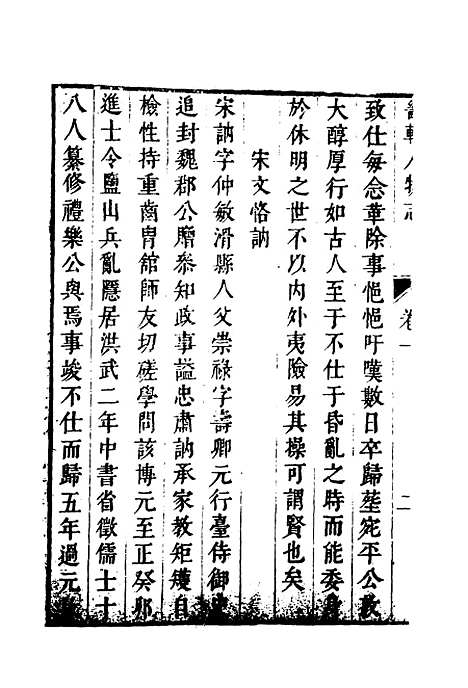 畿輔人物志
卷一
二
致仕每念革除事悒悒吁嘆數日卒歸塟宛平公敦
大醇厚行如古人至于不仕于昏亂之時而能委身
於休明之世不以内外夷險易其操可謂賢也矣
宋文恪訥
宋訥字仲敏滑縣人父崇祿字壽卿元行臺侍御史
追封魏郡公贈叅知政事謚忠肅訥承家教矩矱自
檢性持重齒胄舘師友切磋學問該博元至正癸卯
進士令鹽山兵亂隱居洪武二年中書省徵儒士十
八人纂修禮樂公與焉事竣不仕而歸五年過元